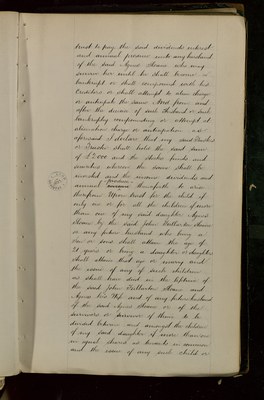 trust to pay the said dividends interest
and annual produce unto any husband
of the said Agnes Shearer who may
survive her until he shall become a
bankrupt or shall compound with his
Creditors or shall attempt to alien charge
or anticipate the same And from and
after the decease of such Husband or such
bankruptcy compounding or attempt at
alienation charge or anticipation as
aforesaid I declare that my said Trustees
or Trustee shall hold the said sum
of £2,000 and the stocks funds and
securities whereon the same shall be
invested and the income dividends and
annual produce thereof to arise
therefrom Upon trust for the child if
only one or for all the children if more
than one of my said daughter Agnes
by the said John
or any future husband who being a
son or sons shall attain the age of
21 years or being a daughter or daughters
shall attain that age or marry and
the issue of any of such children
as shall have died in the lifetime of
the said John and
Agnes his Wife and of any future husband
of the said Agnes or of the
survivors or survivor of them to be
divided between and amongst the children
of my said daughter if more than one
in equal shares as tenants in common
and the issue of any such child or